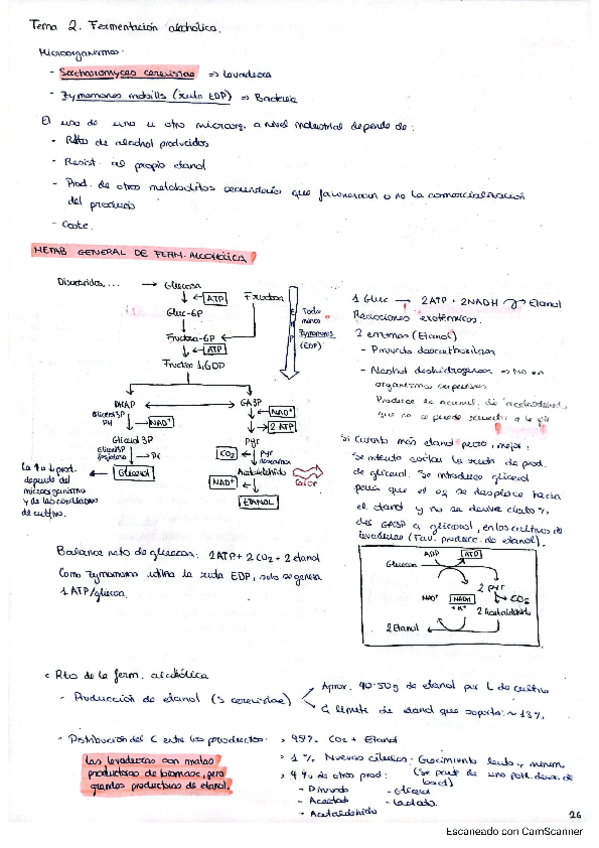 Tema 2. Fermentación alcohólica.
Microorganismos:
- Saccharomyces cerevisiae => levadura
- Zymomonas mobilis (ruta EDP) => Bacteria
El uso de uno u otro microorg. a nivel industrial depende de:
- Rto de alcohol producidos
- Resist. al propio etanol
- Prod. de otros metabolitos secundarios que favorezcan o no la comercialización
del producto
- Coste.
METAB GENERAL DE FERM. ALCOHÓLICA
Disacáridos, ... → Glucosa
ATP
Fructosa
Gluc-6P
Fructosa-6P
ATP
Fructosa 1,6DP
E
M
P
Todos
menos
Zymomonas
(EDP)
DHAP
GA3P
Glicerol 3P
DH
NAD+
NAD+
2 ATP
Glicerol 3P
Pyr
Glicerol 3P
fosfatasa
Pi
CO2
Pyr
Glicerol
Acetaldehído
NAD+
Calor
ETANOL
La ↑ o ↓ prod.
depende del
microorganismo
y de las condiciones
de cultivo.
1 Gluc → 2ATP + 2NADH Etanol
Reacciones exotérmicas.
2 enzimas (Etanol)
- Piruvato descarboxilasa
- Alcohol deshidrogenasa → No en
organismos superiores
Produce se acumul. de acetaldehído,
que no se puede
Si cuanto más etanol mejor:
Se intenta evitar la ruta de prod.
de glicerol. Se introduce glicerol
para que el eq se desplace hacia
el etanol y no se derive cierto %
del GA3P a glicerol, en los cultivos de
levaduras (Fav. produce. de etanol).
Balance neto de glucosa: 2ATP + 2CO2 + 2 etanol
Como Zymomonas utiliza la ruta EDP, solo se genera
1 ATP/glucosa.
ADP
ATP
Glucosa
2 Pyr
NAD+
NADH
+ H+
CO2
2 Acetaldehído
2 Etanol
Rto de la ferm. alcohólica
- Producción de etanol (S cerevisiae)
Aprox. 40-50g de etanol por L de cultivo
límite de etanol que soporta: ~13%
- Distribución del C entre los productos:
> 95% CO2 + Etanol
> 1% Nuevas células: Crecimiento lento y mínim.
> 4% de otros prod:
- Piruvato
- Glicerol
- Acetato
- Lactato
- Acetaldehído
Las levaduras son malas
productoras de biomasa, pero
grandes productoras de etanol.
26
Escaneado con CamScanner